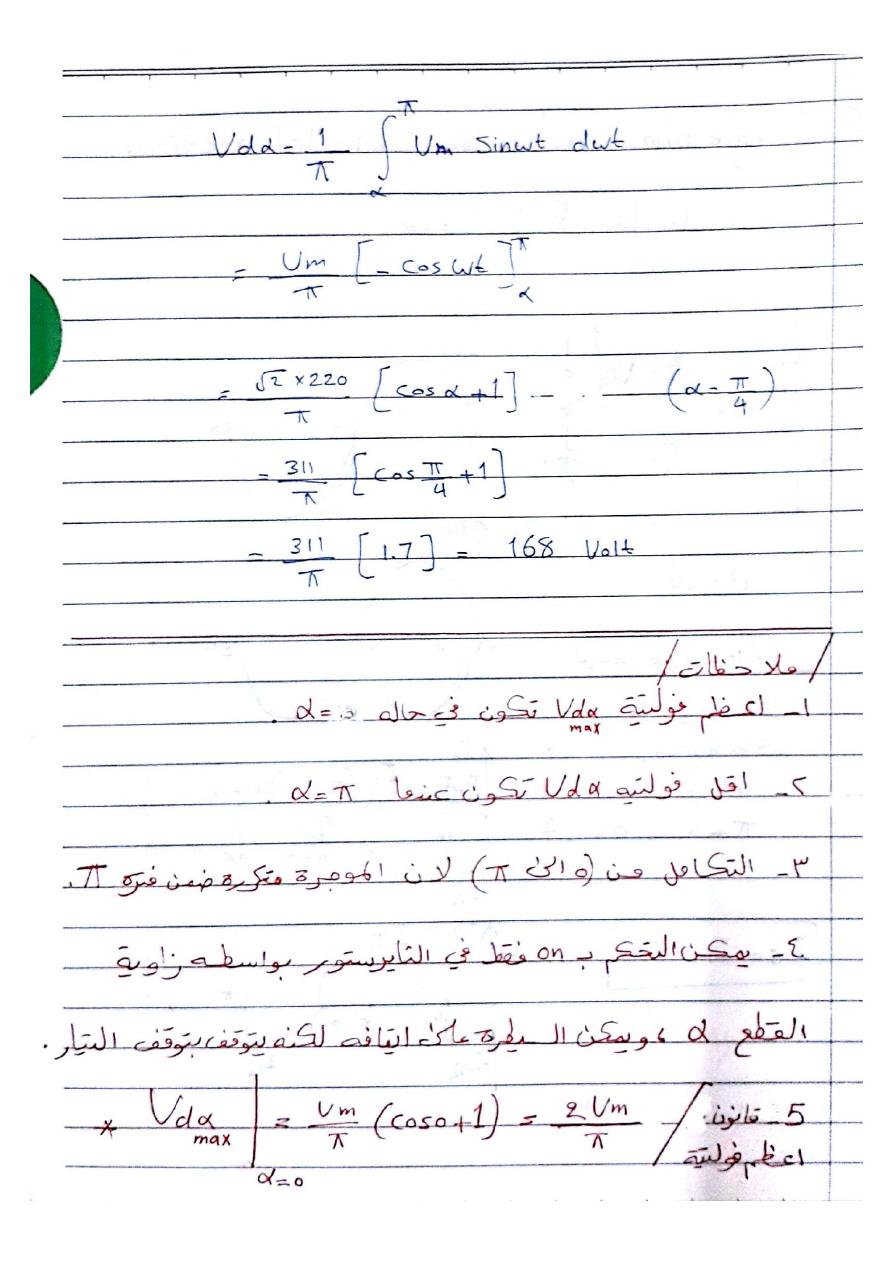 Vdα = 1/π ∫_α^π Vm sinωt dωt
= Vm/π [- cos ωt]_α^π
= √2 × 220/π [cos α + 1] ... (α = π/4)
= 311/π [cos π/4 + 1]
= 311/π [1.7] = 168 Volt
/ ملاحظات /
١- اعظم فولتية Vdα max تكون في حاله α=0 .
٢- اقل فولتيه Vdα تكون عندما α=π .
٣- التكامل من (0 الى π) لان الموجة متكررة ضمن فترة π.
٤- يمكن التحكم بـ on فقط في الثايرستور بواسطه زاوية
القطع α ، ويمكن السيطرة على ايقافه لكنه يتوقف بتوقف التيار .
5- قانون / * Vdα max |α=0 = Vm/π (cos0+1) = 2Vm/π
اعظم فولتية